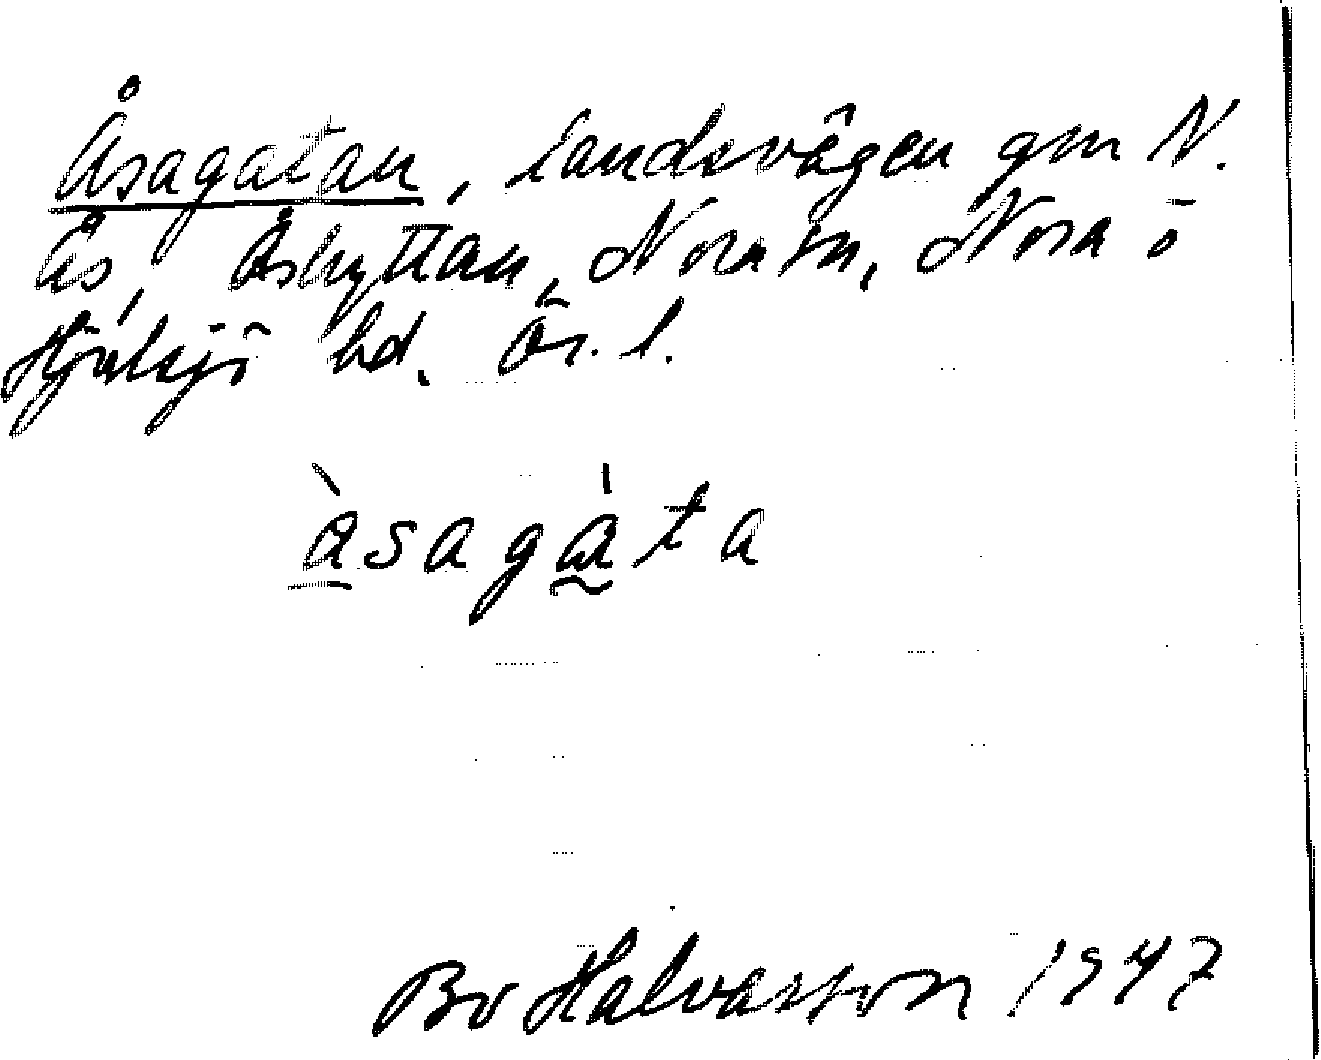 Åsagatan, landsvägen gm N.
Ås, Åshyttan, Nora sn, Nora o
Hjulsjö bd. Ör. l.
àsagàta
Bo Halvarsson 1947